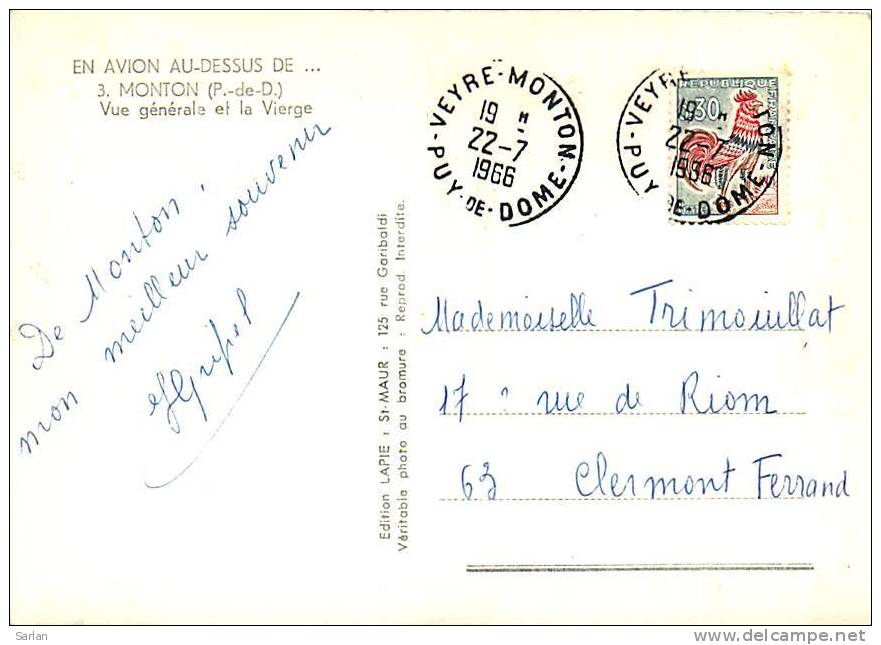 EN AVION AU-DESSUS DE ...
3. MONTON (P.-de-D.)
Vue générale et la Vierge
De Monton,
mon meilleur souvenir
Edition LAPIE : St-MAUR : 125 rue Garibaldi
Véritable photo au bromure : Reprod. Interdite.
VEYRE-MONTON
19 H
22-7
1966
PUY-DE-DOME
REPUBLIQUE FRANCAISE
0,30
VEYRE
TON
19 H
22-7
1966
PUY-DE-DOME
Mademoiselle Trimouillat
17 rue de Riom
63 Clermont Ferrand
Sarlan
www.delcampe.net